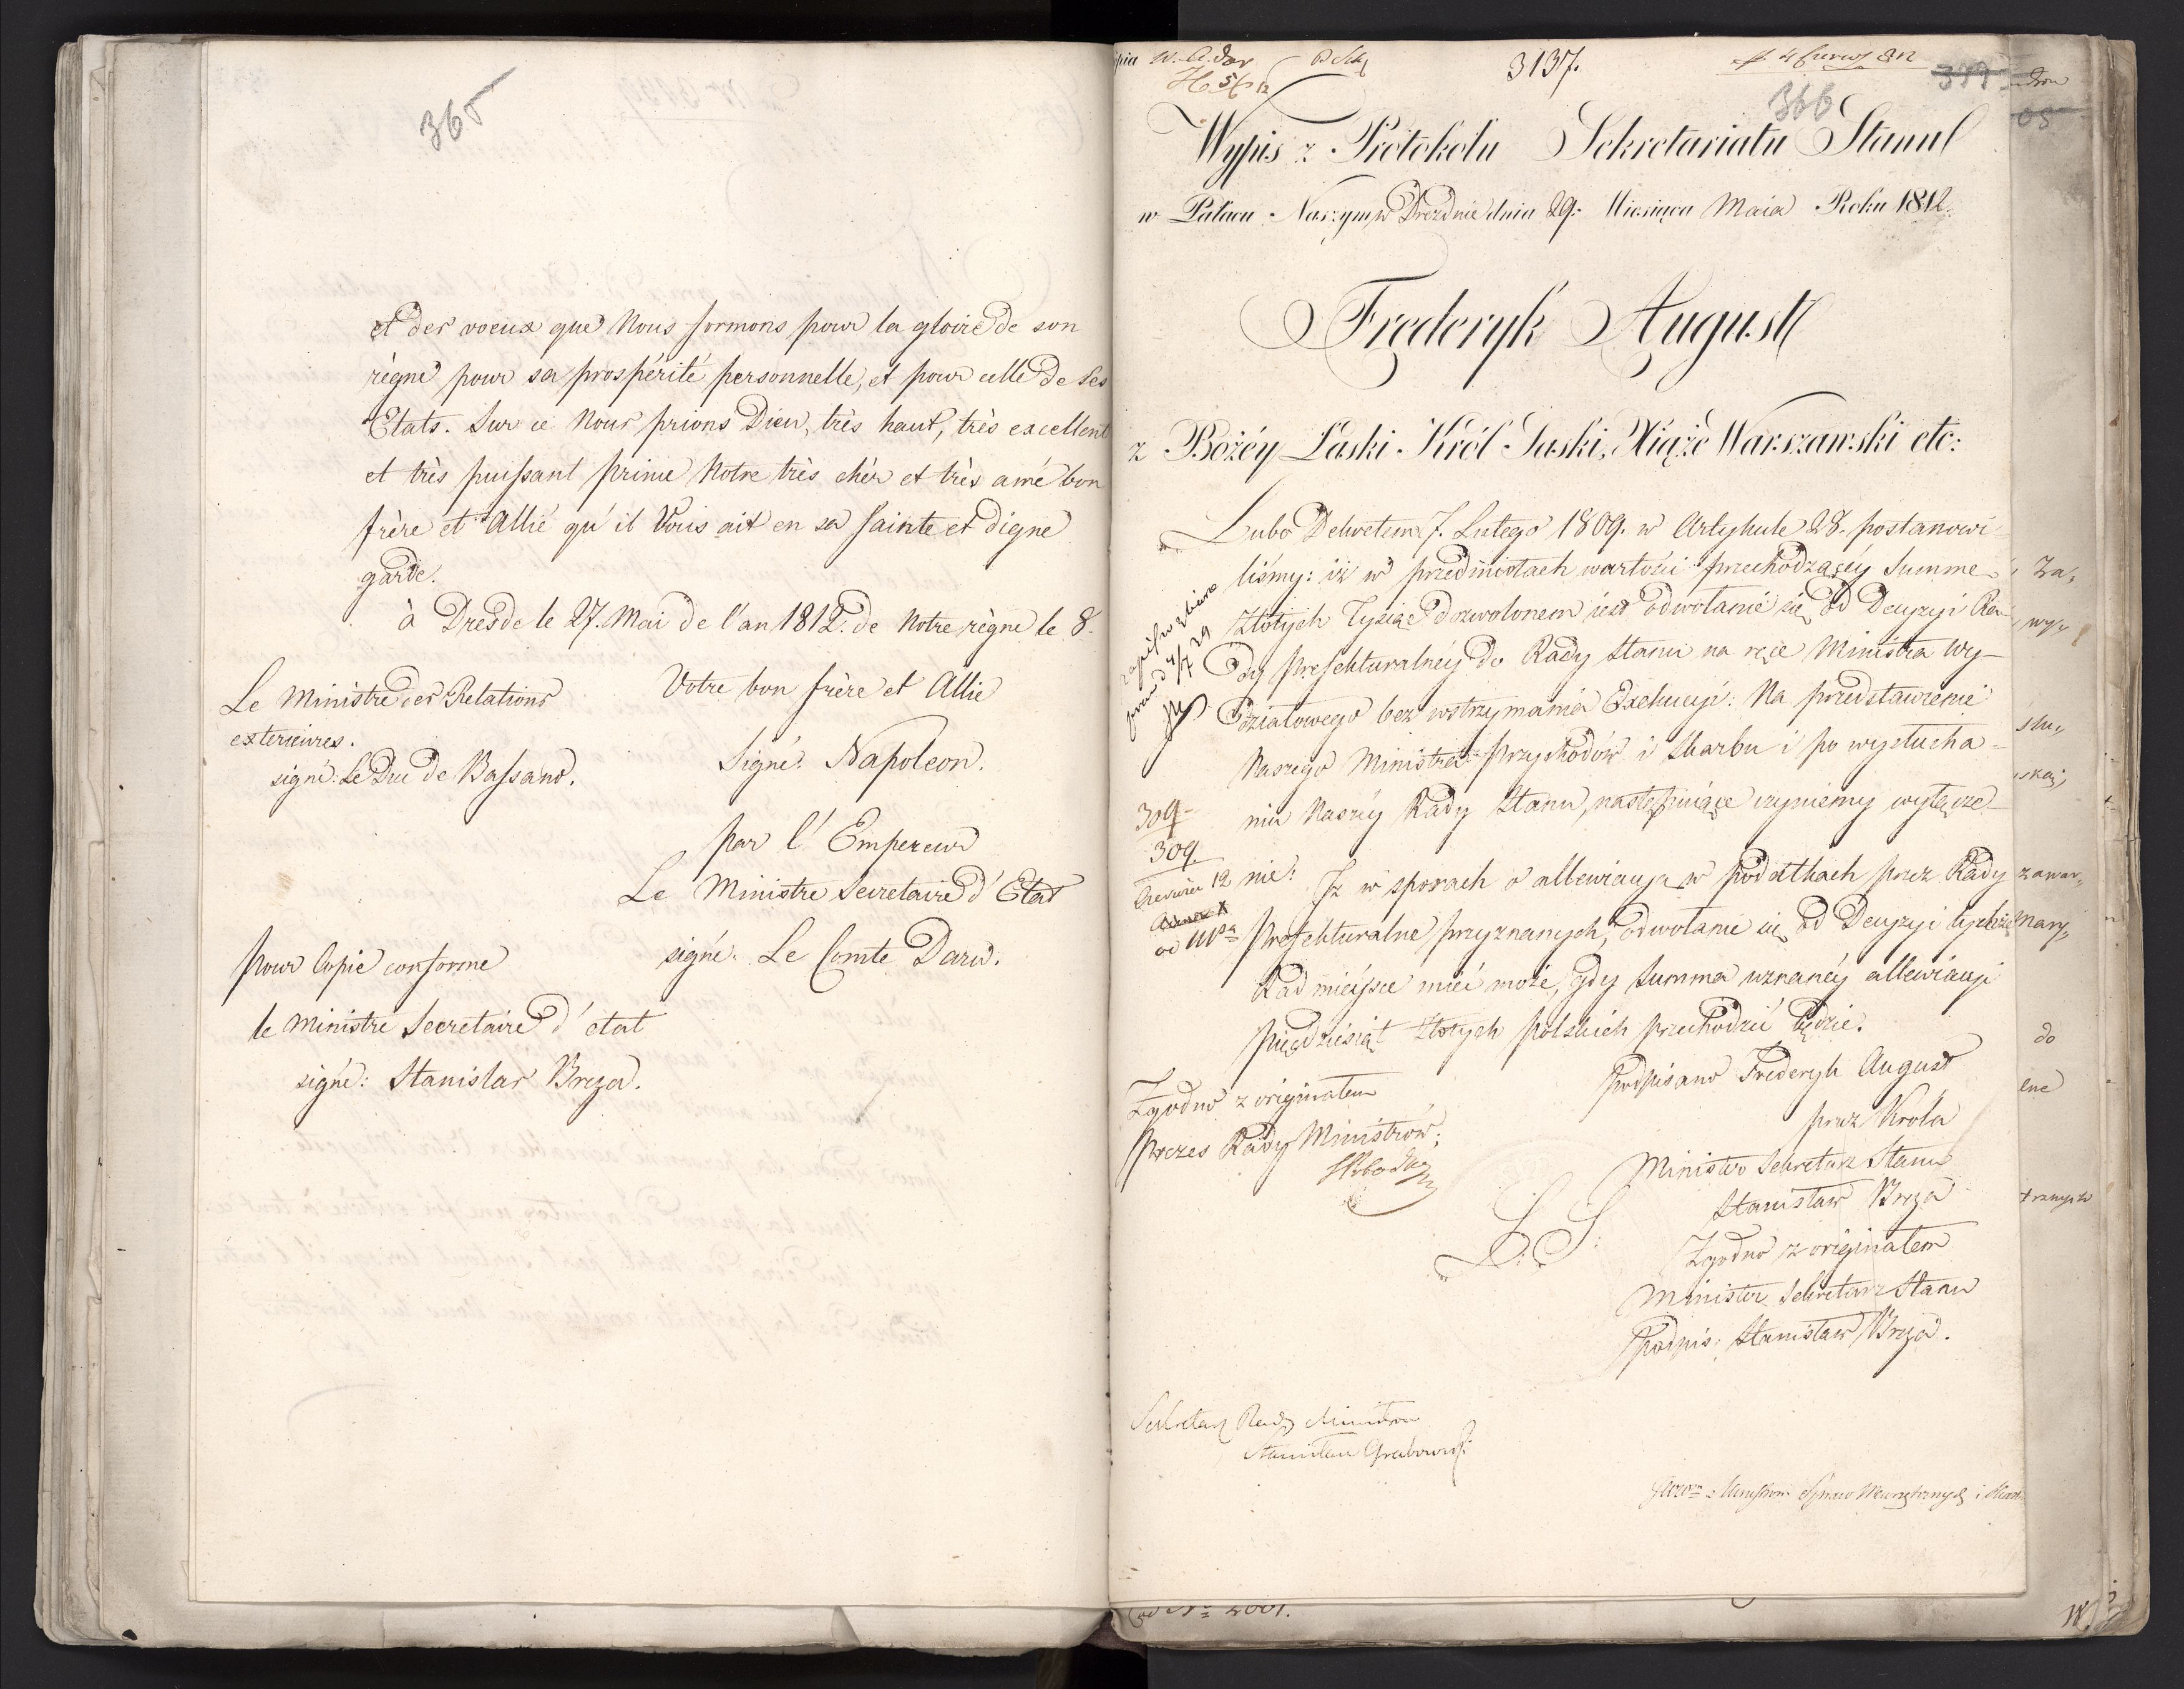 365
et des voeux que Nous formons pour la gloire de son
règne pour sa prospérité personnelle, et pour celle de Ses
Etats. Sur ce Nous prions Dieu, très haut, très excellent
et très puissant Prince Notre très chèr et très amé bon
frère et Allié qu'il Vous ait en sa Sainte et digne
garde.
à Dresde le 27. Mai de l'an 1812. de Notre règne le 8.
Votre bon frère et Allié
Signé: Napoleon.
Le Ministre des Relations
exterieures.
signé: Le Duc de Bassano.
par l'Empereur
Le Ministre Secretaire d'Etat
signé: Le Comte Daru.
Pour Copie conforme
le Ministre Secretaire d'etat
signé: Stanislas Breza.
3137.
366
Wypis z Protokołu Sekretariatu Stanu
w Pałacu Naszym w Dreźnie dnia 29. Miesiąca Maia Roku 1812.
Fryderyk August
z Bożéy Łaski Król Saski, Xiąże Warszawski etc:
Lubo Dekretem 7. Lutego 1809. w Artykule 28. postanowi-
liśmy: iż w przedmiotach wartości przechodzącéy Summę
Złotych Tysiąc dozwolonem iest odwołanie się od Decyzyi Ra-
dy Prefekturalnéy do Rady Stanu na ręce Ministra Wy-
działowego bez wstrzymania Exekucyi: Na przedstawienie
Naszego Ministra Przychodów i Skarbu i po wysłucha-
niu Naszéy Rady Stanu, następuiące czyniemy wyłącze-
nie: Iż w sporach o allewiacyą w podatkach przez Rady
Prefekturalne przyznanych, odwołanie się od Decyzyi tychże
Rad mieysce mieć może, gdy Summa uznanéy allewiacyi
pięćdziesiąt Złotych Polskich przechodzić będzie.
309
309
Podpisano Fryderyk August
przez Króla
Minister Sekretarz Stanu
Stanisław Breza
Zgodno z originałem
Prezes Rady Ministrów;
L. S.
Zgodno z originałem
Minister Sekretarz Stanu
Podpis: Stanisław Breza.
Sekretarz Rady Ministrów
Stanisław Grabowski
za,
wy,
słu,
zawar,
do